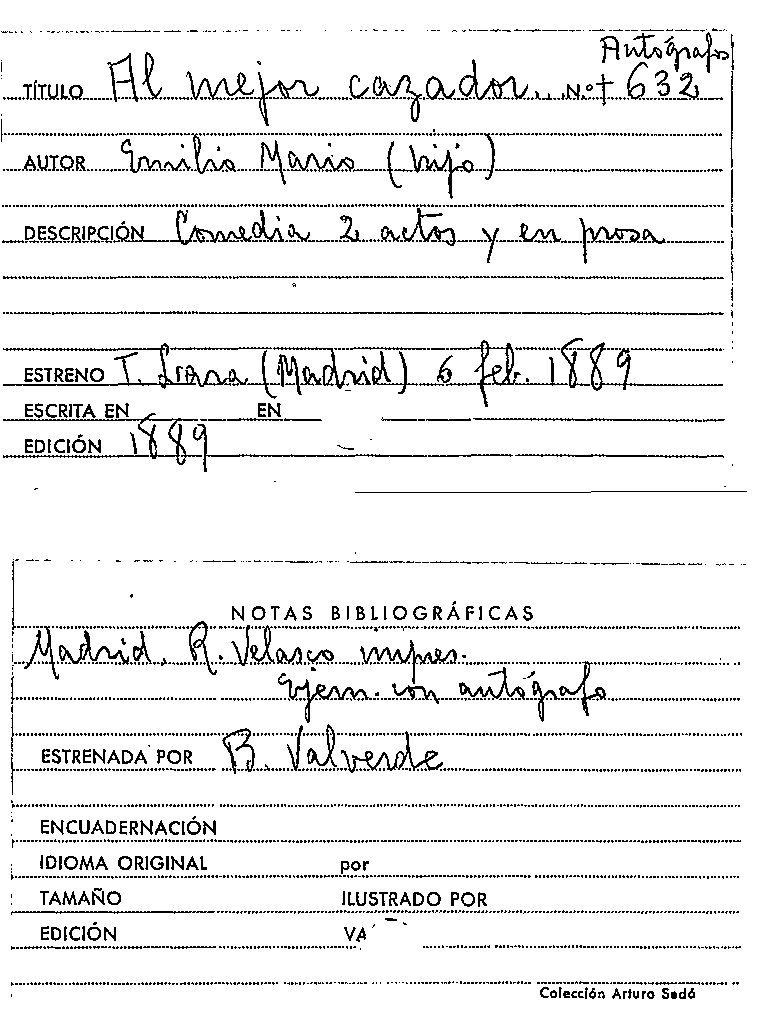 Autógrafos
TÍTULO Al mejor cazador... N.º + 632
AUTOR Emilio Mario (hijo)
DESCRIPCIÓN Comedia 2 actos y en prosa
ESTRENO T. Lara (Madrid) 6 feb. 1889
ESCRITA EN EN
EDICIÓN 1889
NOTAS BIBLIOGRÁFICAS
Madrid, R. Velasco impres.
Ejem. con autógrafo
ESTRENADA POR B. Valverde
ENCUADERNACIÓN
IDIOMA ORIGINAL por
TAMAÑO ILUSTRADO POR
EDICIÓN VA
Colección Arturo Sedó